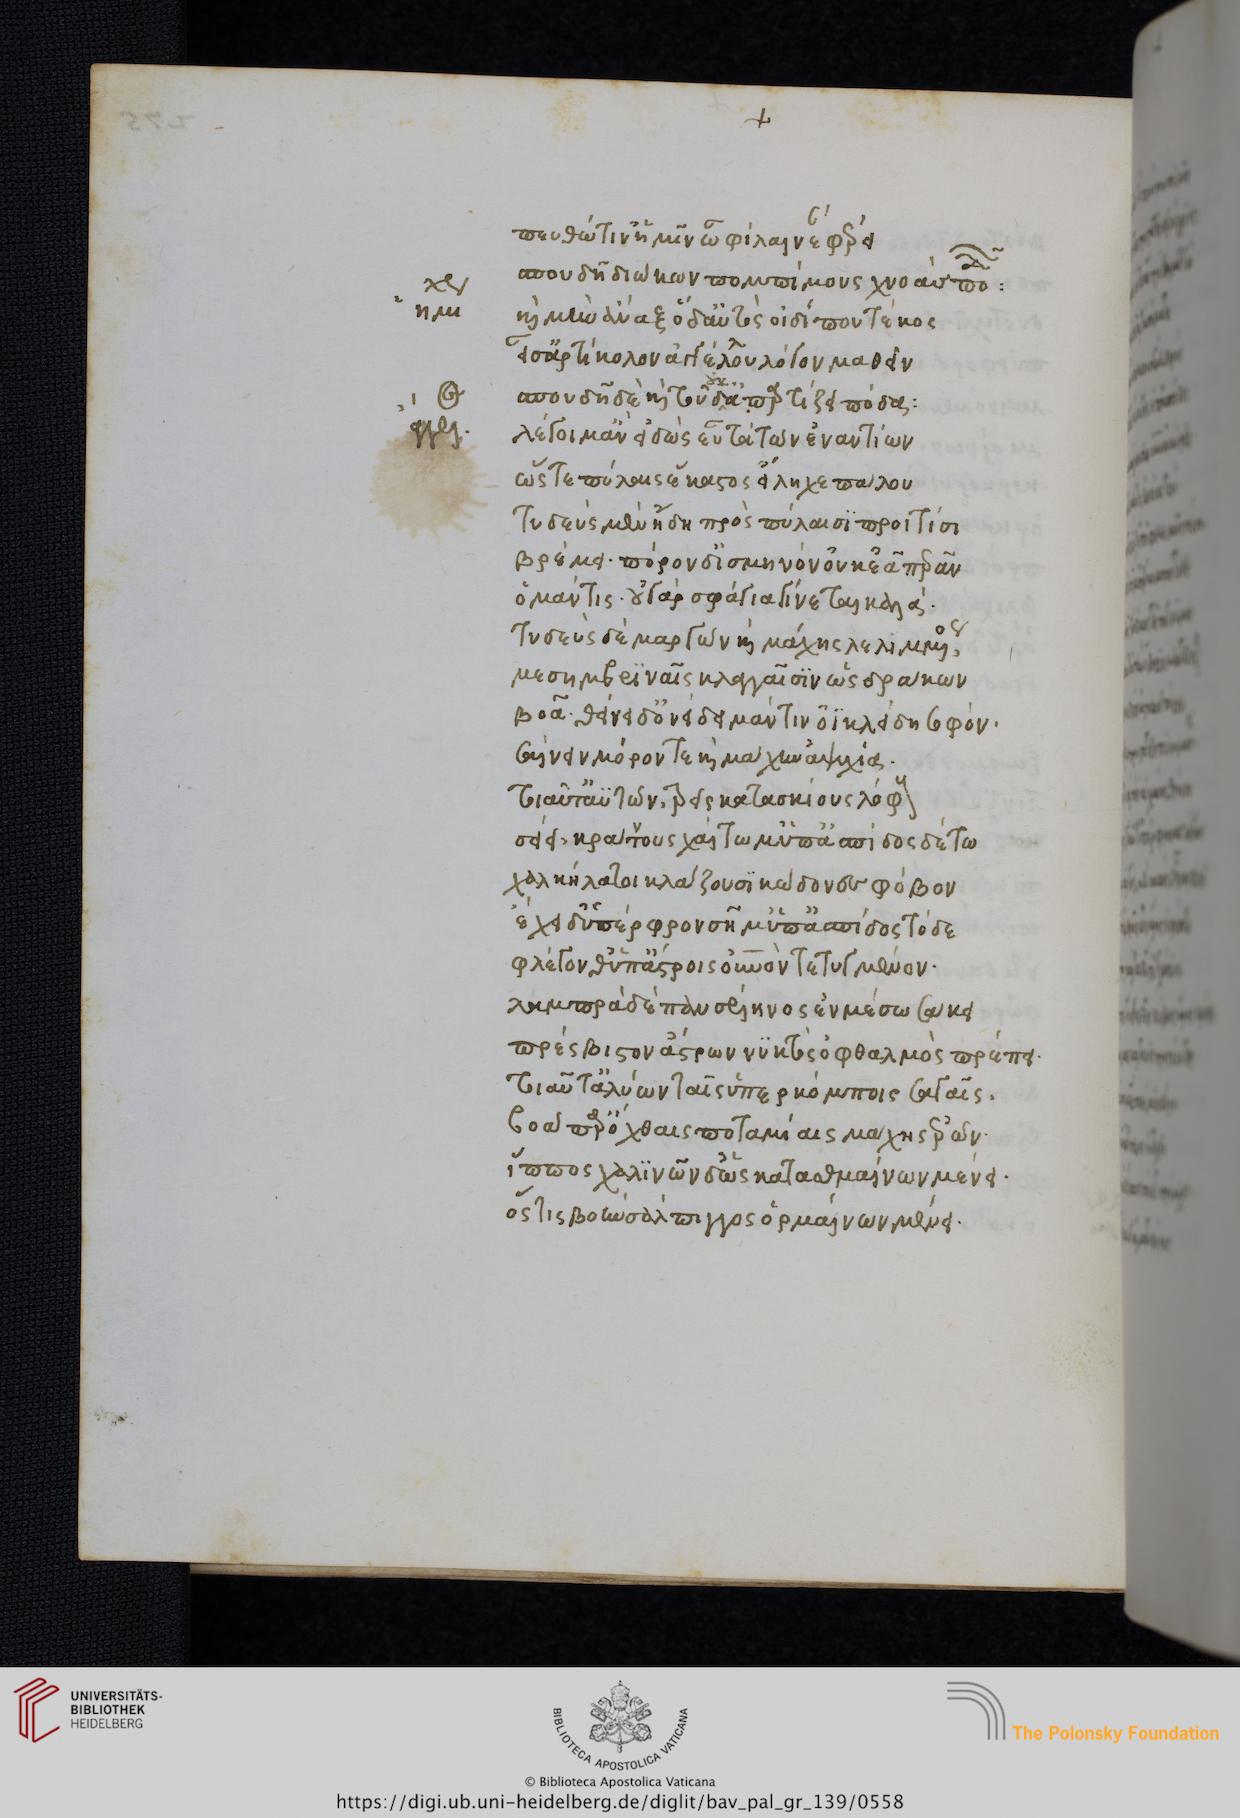 +
πευθώ τιν ἡμῖν ὦ φίλαι νέαν φέρει
σπουδῇ διώκων πομπίμους χνόας ποδῶν:
χορ
ἡμι
καὶ μὴν ἄναξ ὅδ' αὐτὸς οἰδίπου τέκος
εἰσ' ἀρτίκολον ἀγγέλου λόγον μαθεῖν
σπουδὴ δὲ καὶ τοῦδ' οὐκ ἀπαρτίζει πόδας:
ἄγγελ.
λέγοιμ' ἂν εἰδὼς εὖ τὰ τῶν ἐναντίων
ὥς τε πύλαις ἕκαστος εἴληχε πάλον
τυδεὺς μὲν ἤδη πρὸς πύλαισι προιτίσι
βρέμει· πόρον δ' ἰσμηνὸν οὐκ ἐᾷ περᾶν
ὁ μάντις· οὐ γὰρ σφάγια γίνεται καλά·
τυδεὺς δὲ μαργῶν καὶ μάχης λελιμμένος
μεσημβριναῖς κλαγγαῖσιν ὡς δράκων
βοᾷ· θείνει δ' ὀνείδει μάντιν οἰκλείδη σοφόν·
σαίνειν μόρον τε καὶ μάχην ἀψυχίᾳ·
τοιαῦτ' ἀϋτῶν, τρεῖς κατασκίους λόφους
σείει, κράνους χαίτωμ' ὑπ' ἀσπίδος δὲ τῷ
χαλκήλατοι κλάζουσι κώδωνες φόβον
ἔχει δ' ὑπέρφρον σῆμ' ὑπ' ἀσπίδος τόδε
φλέγονθ' ὑπ' ἄστροις οὐρανὸν τετυγμένον·
λαμπρὰ δὲ πανσέληνος ἐν μέσῳ σάκει
πρέσβιστον ἄστρων νυκτὸς ὀφθαλμὸς πρέπει·
τοιαῦτ' ἀλύων ταῖς ὑπερκόμποις σαγαῖς·
βοᾷ παρ' ὄχθαις ποταμίαις μάχης ἐρῶν·
ἵππος χαλινῶν δ' ὣς κατασθμαίνων μένει·
ὅστις βοὴν σάλπιγγος ὁρμαίνων μένει·
UNIVERSITÄTS-
BIBLIOTHEK
HEIDELBERG
BIBLIOTECA APOSTOLICA VATICANA
The Polonsky Foundation
© Biblioteca Apostolica Vaticana
https://digi.ub.uni-heidelberg.de/diglit/bav_pal_gr_139/0558